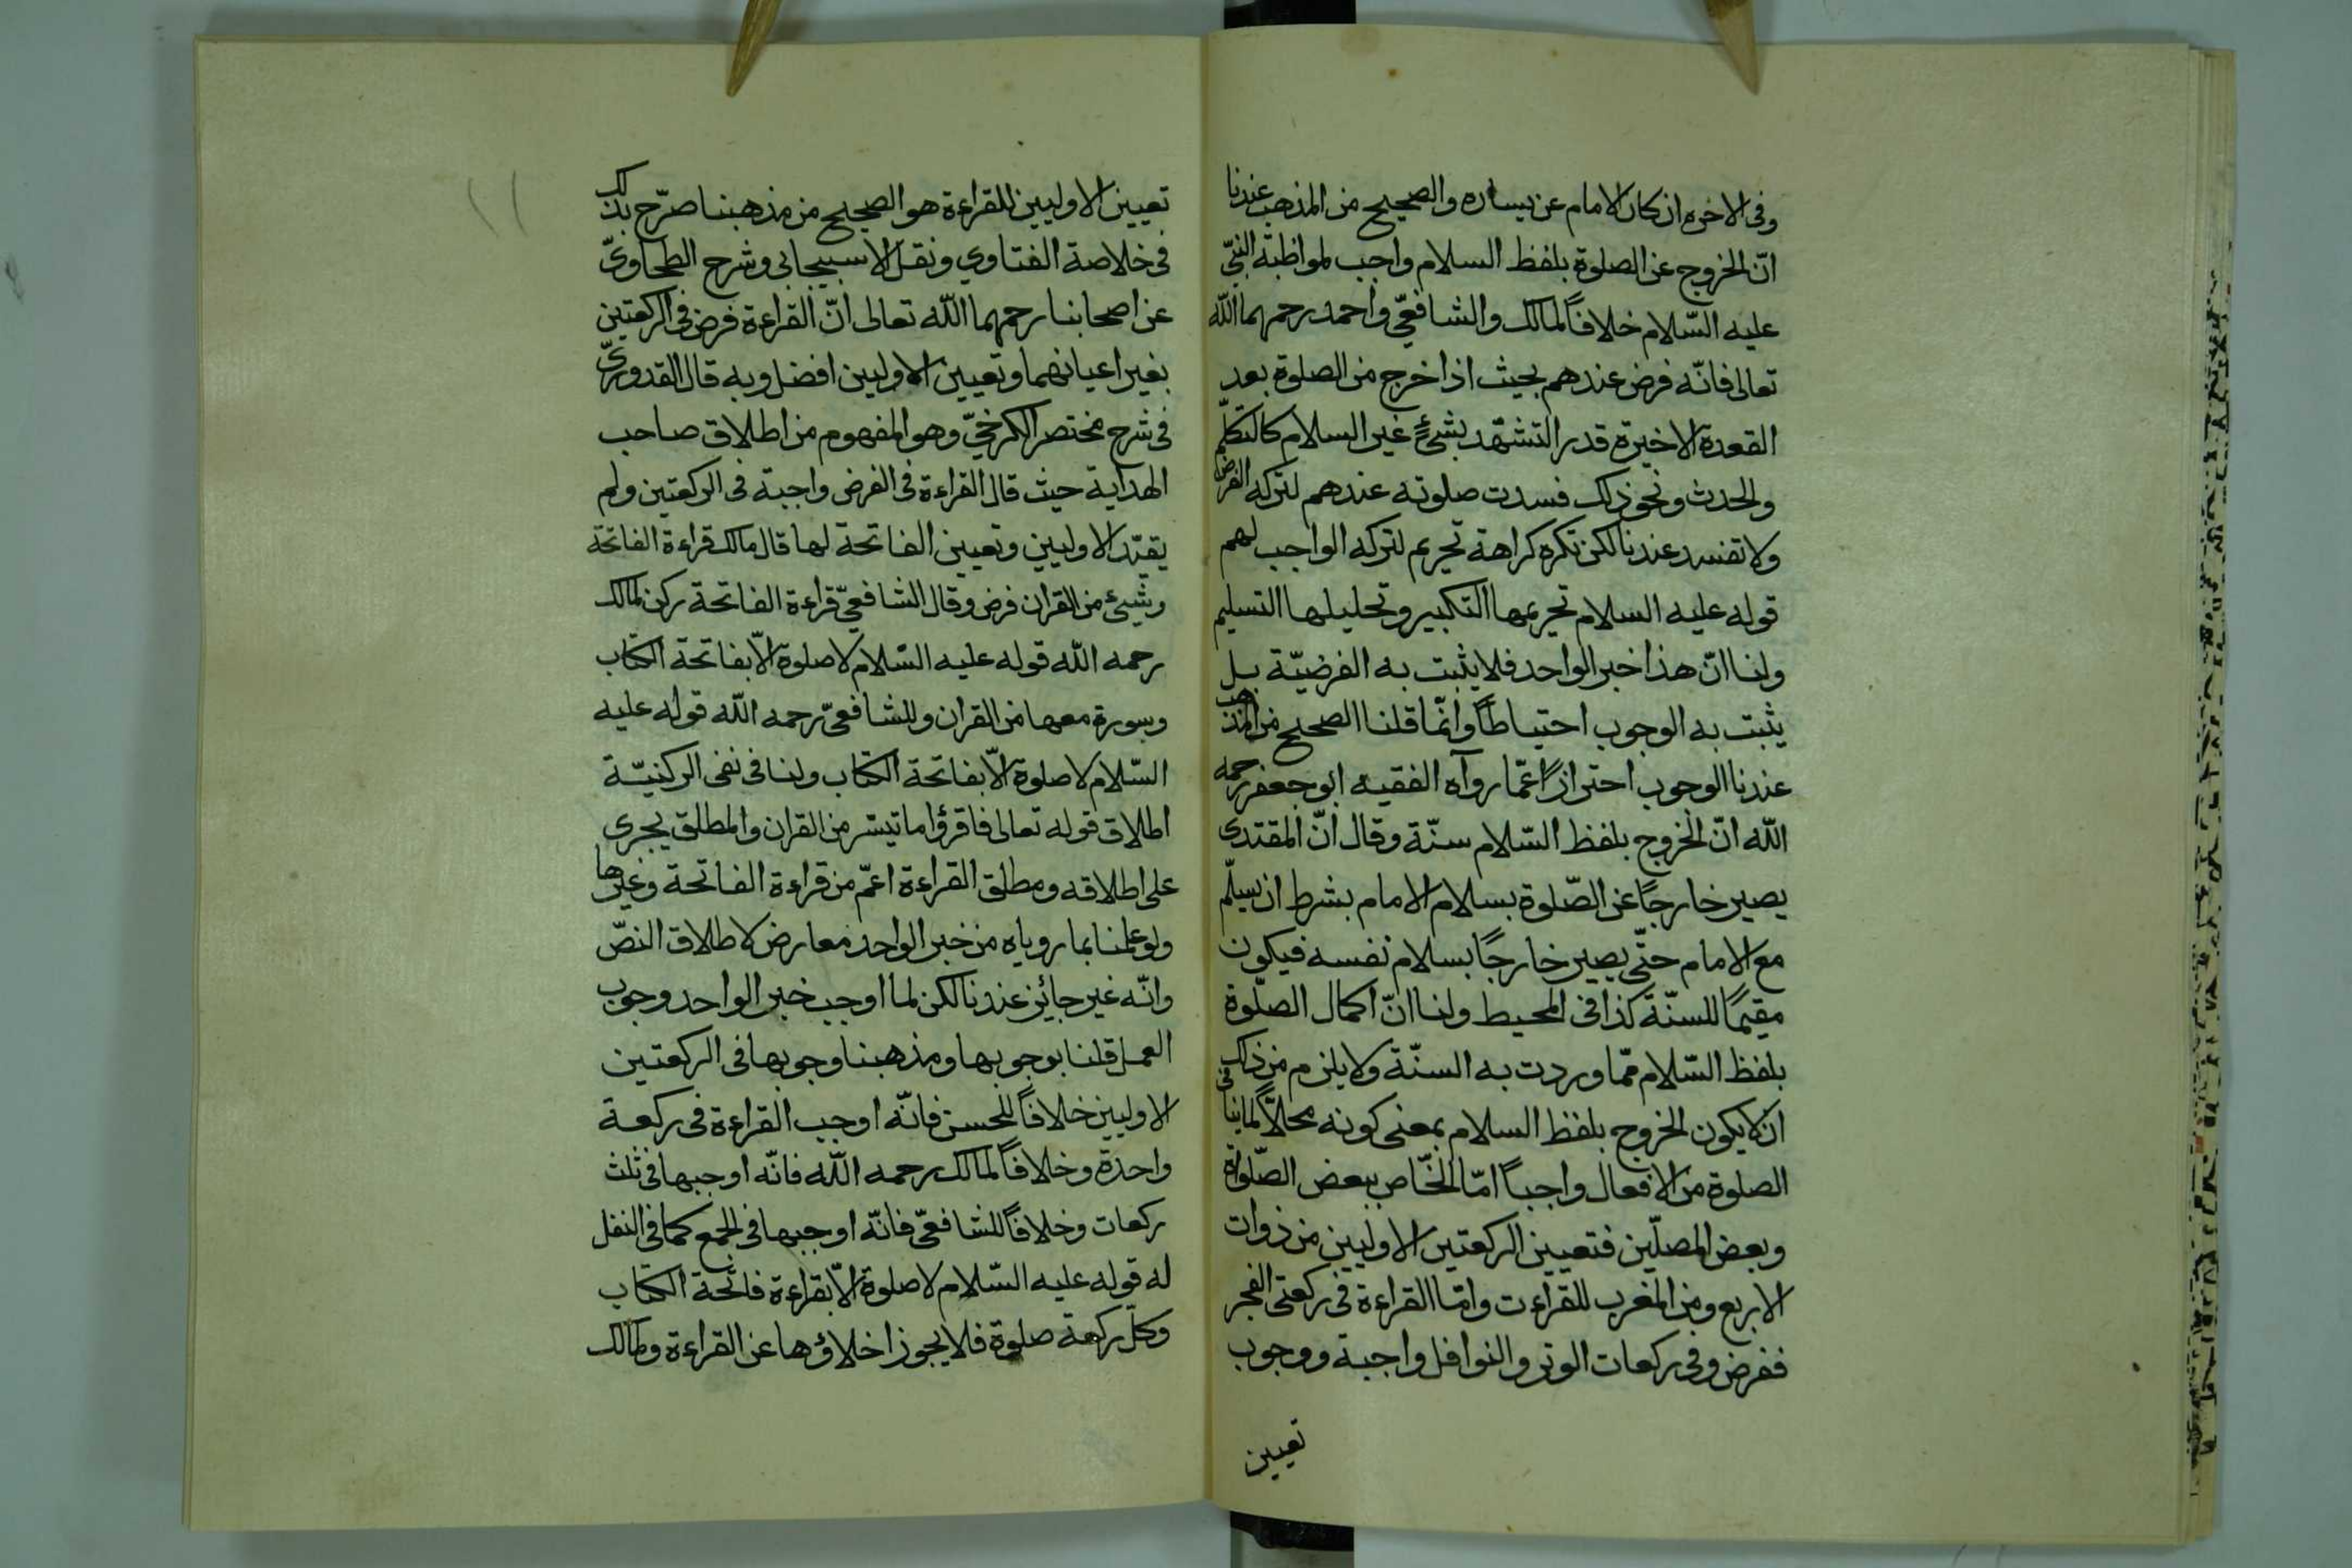 وفى الاخره ان كان الامام عن يساره والصحيح من المذهب عندنا
انّ الخروج عن الصلوة بلفظ السلام واجب لمواظبة النبىّ
عليه السّلام خلافاً لمالك والشافعىّ واحمد رحمهما اللّه
تعالى فانّه فرض عندهم بحيث اذا خرج من الصلوة بعد
القعدة الاخيرة قدر التشهّد بشئ غير السلام كالتكلّم
والحدث ونحو ذلك فسدت صلوته عندهم لتركه الفرض
ولا تفسد عندنا لكن تكره كراهة تحريم لتركه الواجب لهم
قوله عليه السلام تحريمها التكبير وتحليلها التسليم
ولنا انّ هذا خبر الواحد فلا يثبت به الفرضيّة بل
يثبت به الوجوب احتياطاً وانّما قلنا الصحيح من المذهب
عندنا الوجوب احترازاً عمّا رواه الفقيه ابو جعفر رحمه
اللّه انّ الخروج بلفظ السّلام سنّة وقال انّ المقتدى
يصير خارجًا عن الصّلوة بسلام الامام بشرط ان يسلّم
مع الامام حتّى يصير خارجًا بسلام نفسه فيكون
مقيمًا للسنّة كذا فى المحيط ولنا انّ اكمال الصلّوة
بلفظ السّلام ممّا وردت به السنّة ولا يلزم من ذلك
ان لا يكون الخروج بلفظ السلام بمعنى كونه محلاًّ لما ينافى
الصلوة من الافعال واجباً امّا الخّاص ببعض الصّلواة
وبعض المصلّين فتعيين الركعتين الاوليين من ذوات
الاربع ومن المغرب للقراءت وامّا القراءة فى ركعتى الفجر
ففرض وفى ركعات الوتر والنوافل واجبة ووجوب
تعيين
تعيين الاوليين للقراءة هو الصحيح من مذهبنا صرّح بذلك
فى خلاصة الفتاوى ونقل الاسبيجابى وشرح الطحاوىّ
عن اصحابنا رحمهما اللّه تعالى انّ القراءة فرض فى الركعتين
بغير اعيانهما وتعيين الاوليين افضل وبه قال القدورىّ
فى شرح مختصر الكرخىّ وهو المفهوم من اطلاق صاحب
الهداية حيث قال القراءة فى الفرض واجبة فى الركعتين ولم
يقيّد الاوليين وتعيين الفاتحة لها قال مالك قراءة الفاتحة
وشيئ من القران فرض وقال الشافعىّ قراءة الفاتحة ركن لمالك
رحمه اللّه قوله عليه السّلام لا صلوة الاّ بفاتحة الكتاب
وسورة معها من القران وللشافعىّ رحمه اللّه قوله عليه
السّلام لا صلوة الاّ بفاتحة الكتاب ولنا فى نفى الركنيّة
اطلاق قوله تعالى فاقرؤا ما تيسّر من القران والمطلق يجرى
على اطلاقه ومطلق القراءة اعمّ من قراءة الفاتحة وغيرها
ولو علمنا بما روياه من خبر الواحد معارض لاطلاق النصّ
وانّه غير جائز عندنا لكن لما اوجب خبر الواحد وجوب
العمل قلنا بوجوبها ومذهبنا وجوبها فى الركعتين
الاوليين خلافاً للحسن فانّه اوجب القراءة فى ركعة
واحدة وخلافاً لمالك رحمه اللّه فانّه اوجبها فى ثلث
ركعات وخلافاً للشافعىّ فانّه اوجبها فى الجمع كما فى النفل
له قوله عليه السّلام لا صلوة الاّ بقراءة فاتحة الكتاب
وكلّ ركعة صلوة فلا يجوز اخلاؤها عن القراءة ولمالك